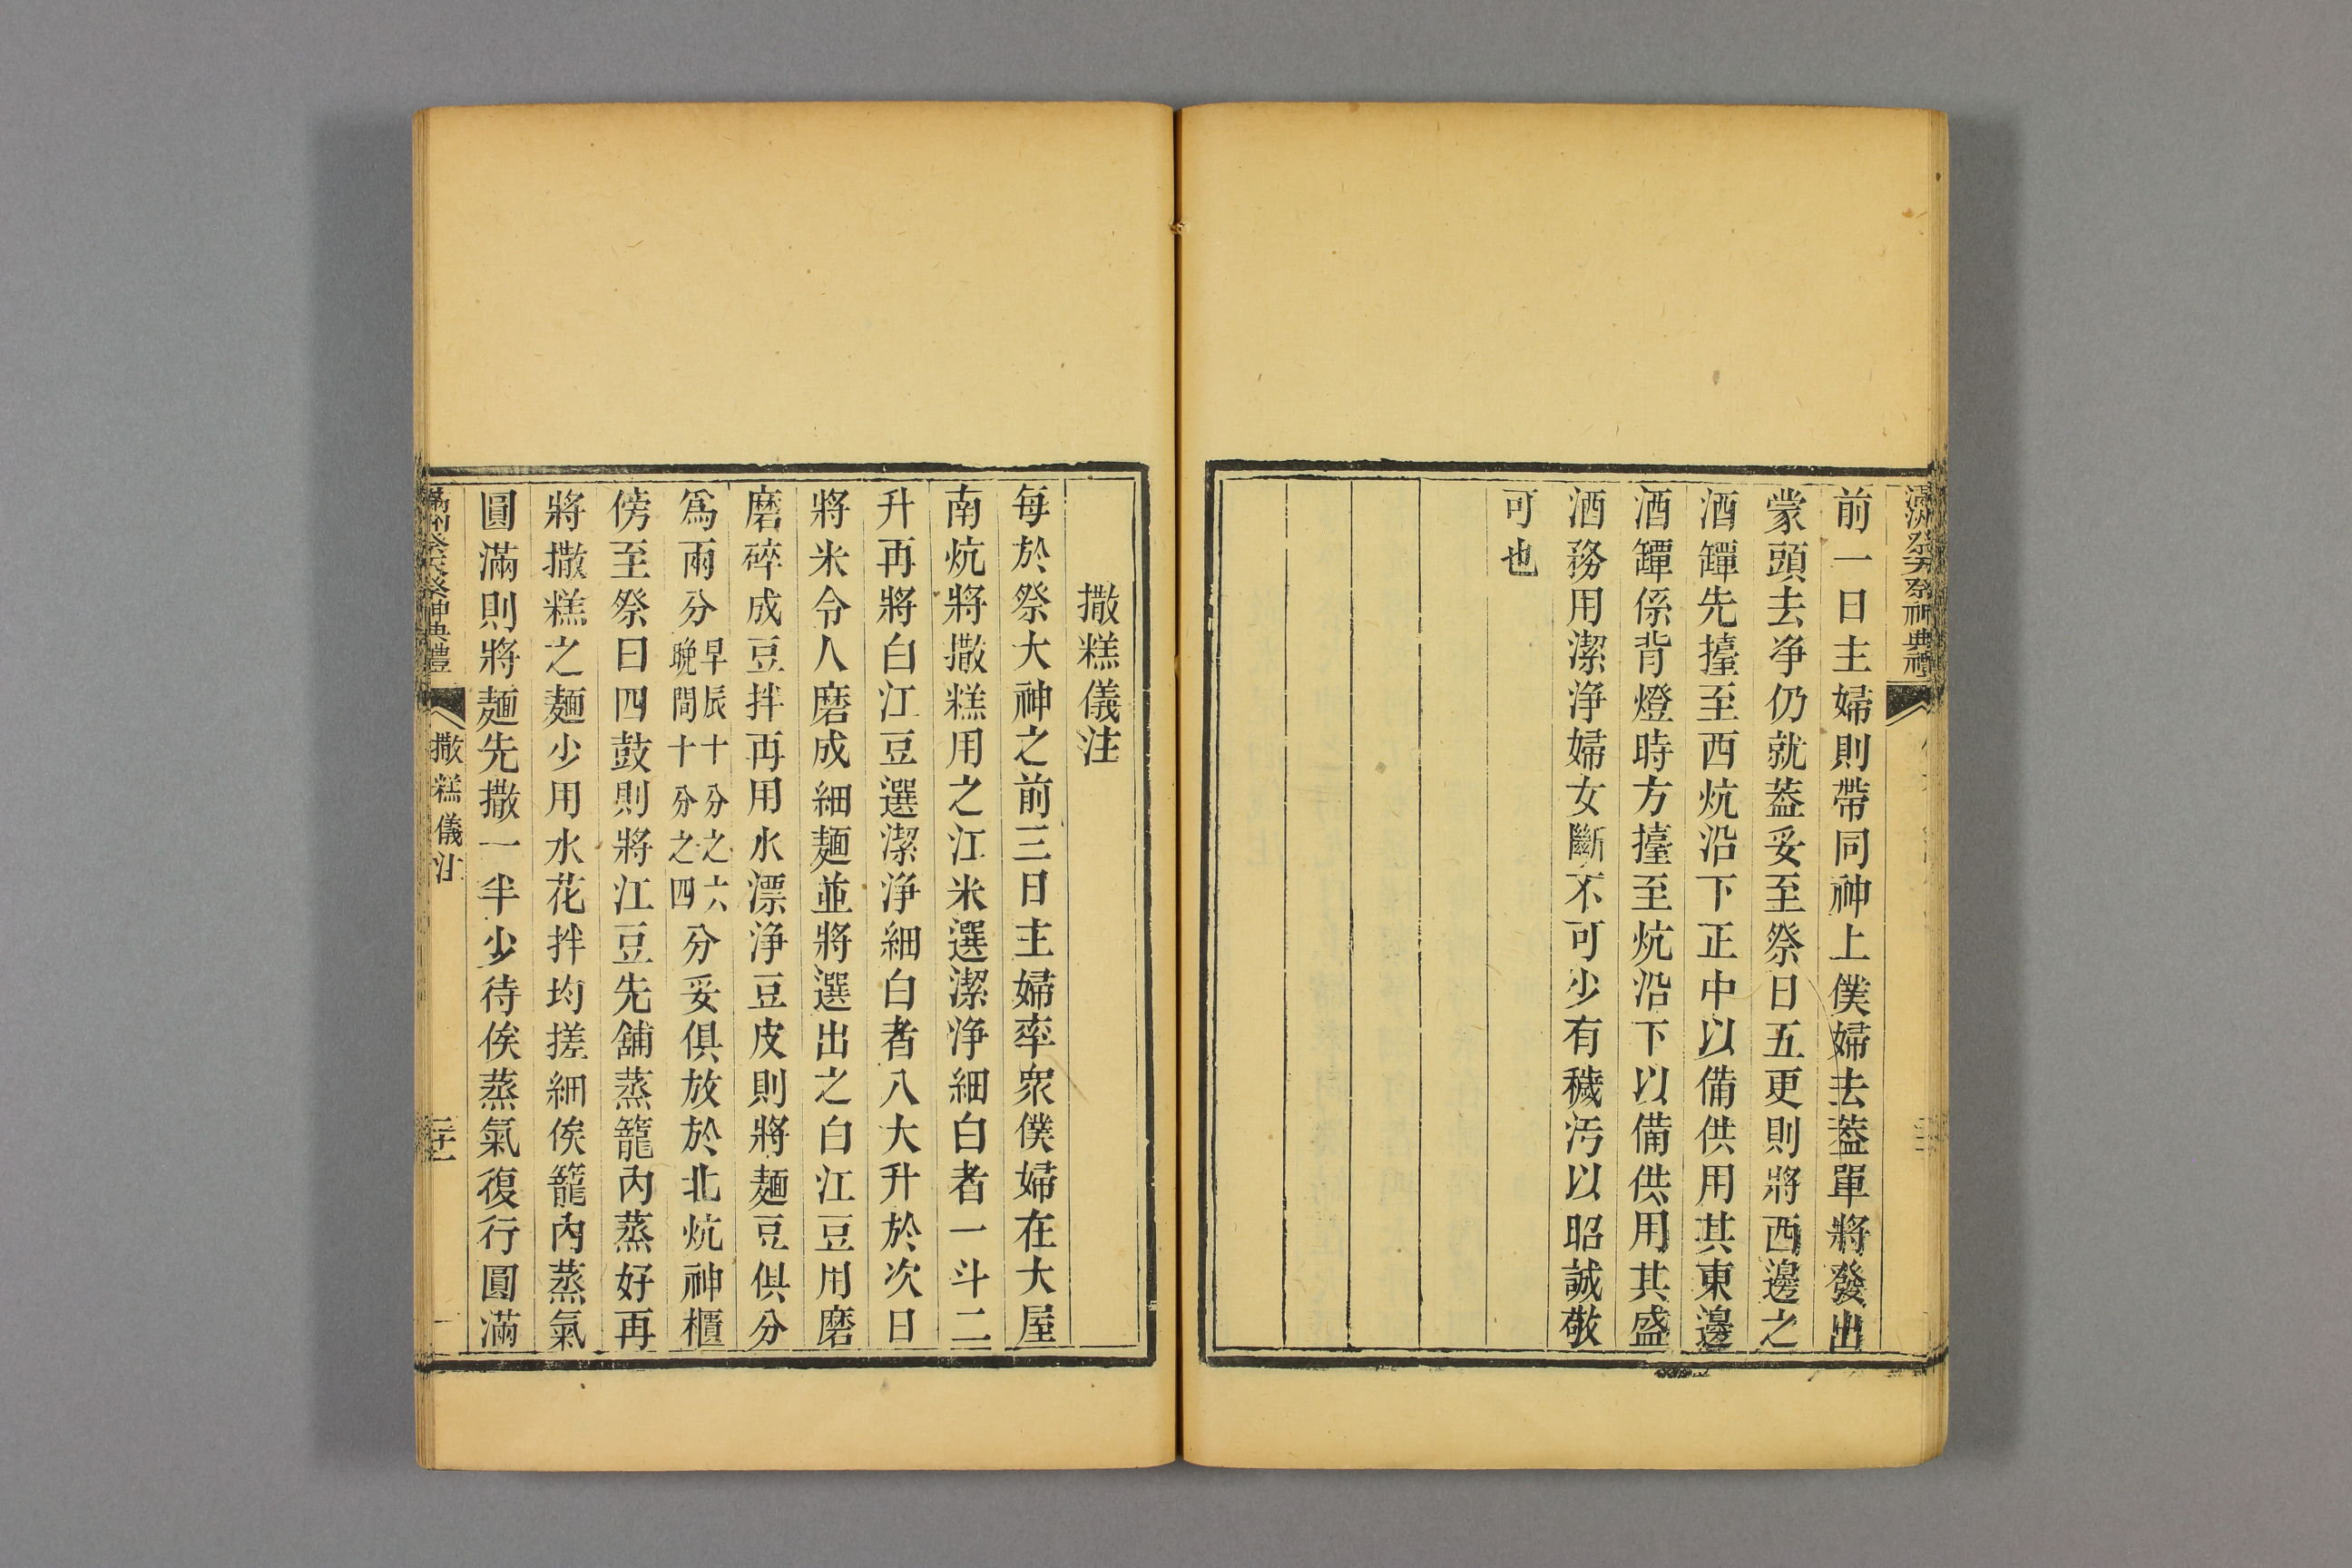 前一日主婦則帶同神上僕婦去蓋單將發出
蒙頭去净仍就蓋妥至祭日五更則將西邊之
酒罈先擡至西炕沿下正中以備供用其東邊
酒罈係背燈時方擡至炕沿下以備供用其盛
酒務用潔净婦女斷不可少有穢污以昭誠敬
可也
撒糕儀注
每於祭大神之前三日主婦率衆僕婦在大屋
南炕將撒糕用之江米選潔净細白者一斗二
升再將白江豆選潔净細白者八大升於次日
將米令人磨成細麵並將選出之白江豆用磨
磨碎成豆拌再用水漂净豆皮則將麵豆俱分
爲兩分早辰十分之六晚間十分之四分妥俱放於北炕神櫃
傍至祭日四鼓則將江豆先舖蒸籠内蒸好再
將撒糕之麵少用水花拌均搓細俟籠内蒸氣
圓滿則將麵先撒一半少待俟蒸氣復行圓滿
滿洲祭天祭神典禮 撒糕儀注